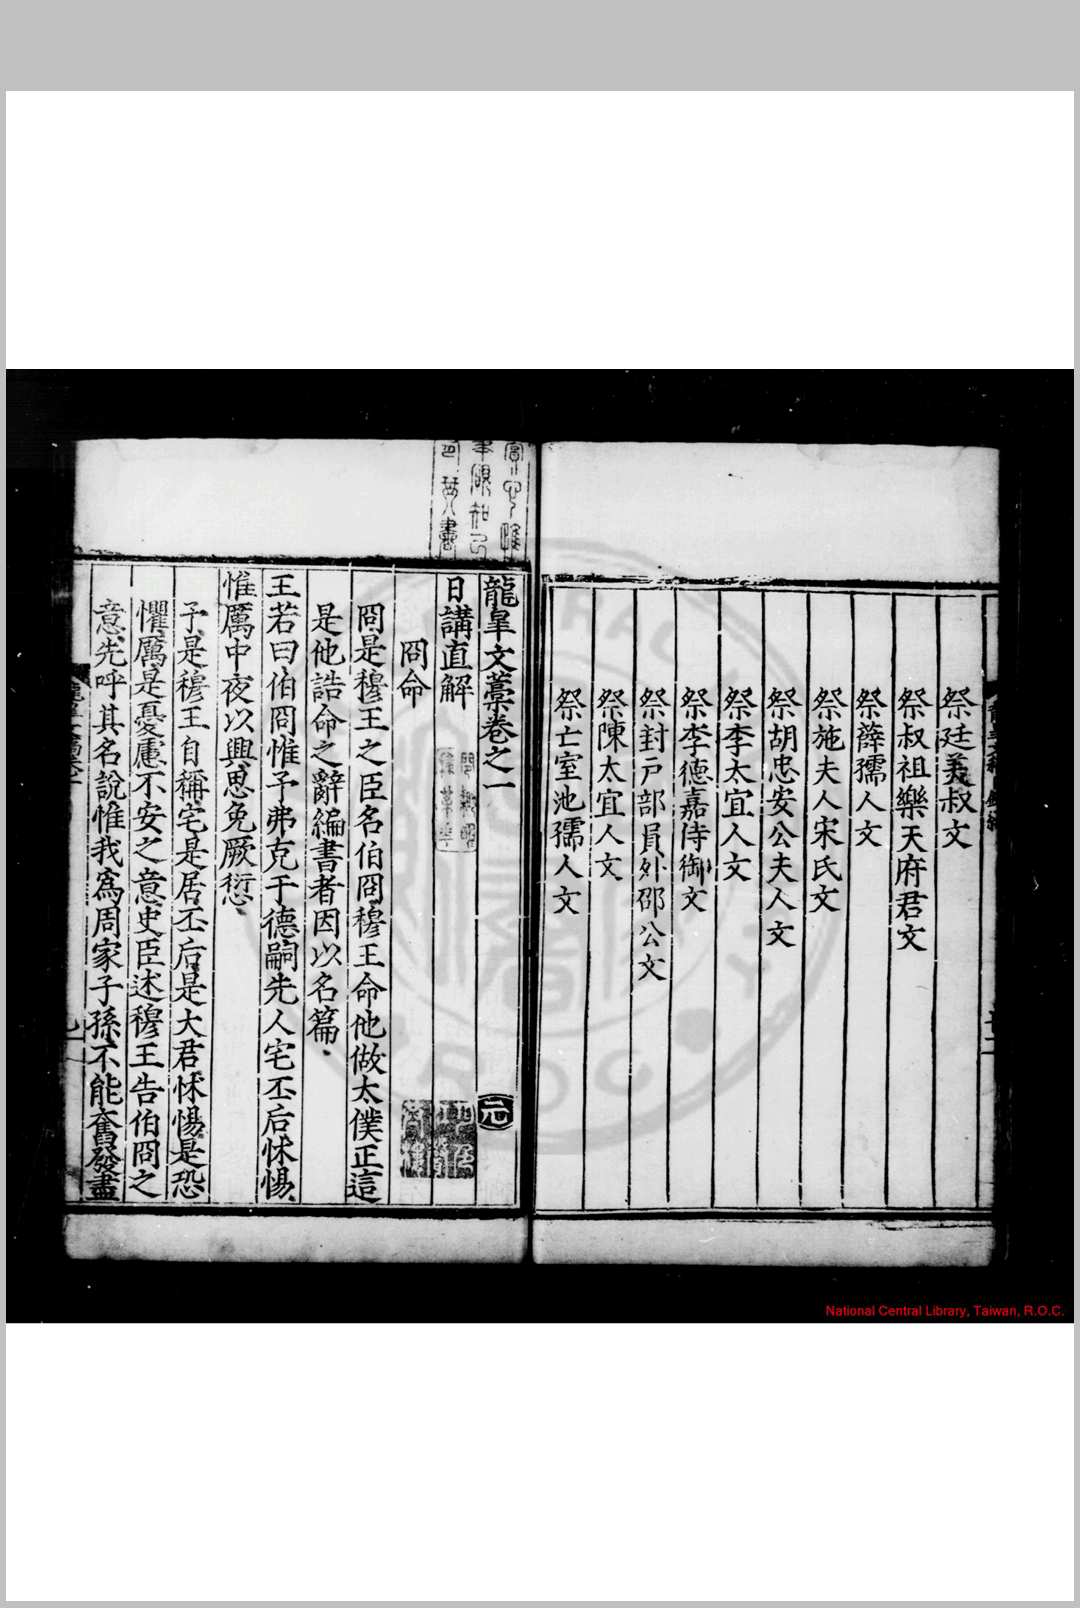 祭廷義叔文
祭叔祖樂天府君文
祭薛孺人文
祭施夫人宋氏文
祭胡忠安公夫人文
祭李太宜人文
祭李德嘉侍御文
祭封戸部員外邵公文
祭陳太宜人文
祭亡室池孺人文
龍皐文藁卷之一 元
日講直解
冏命
冏是穆王之臣名伯冏穆王命他做太僕正這
是他誥命之辭編書者因以名篇
王若曰伯冏惟予弗克于德嗣先人宅丕后怵惕
惟厲中夜以興思免厥愆
予是穆王自稱宅是居丕后是大君怵惕是恐
懼厲是憂慮不安之意史臣述穆王告伯冏之
意先呼其名說惟我爲周家子孫不能奮發盡
National Central Library, Taiwan, R.O.C.